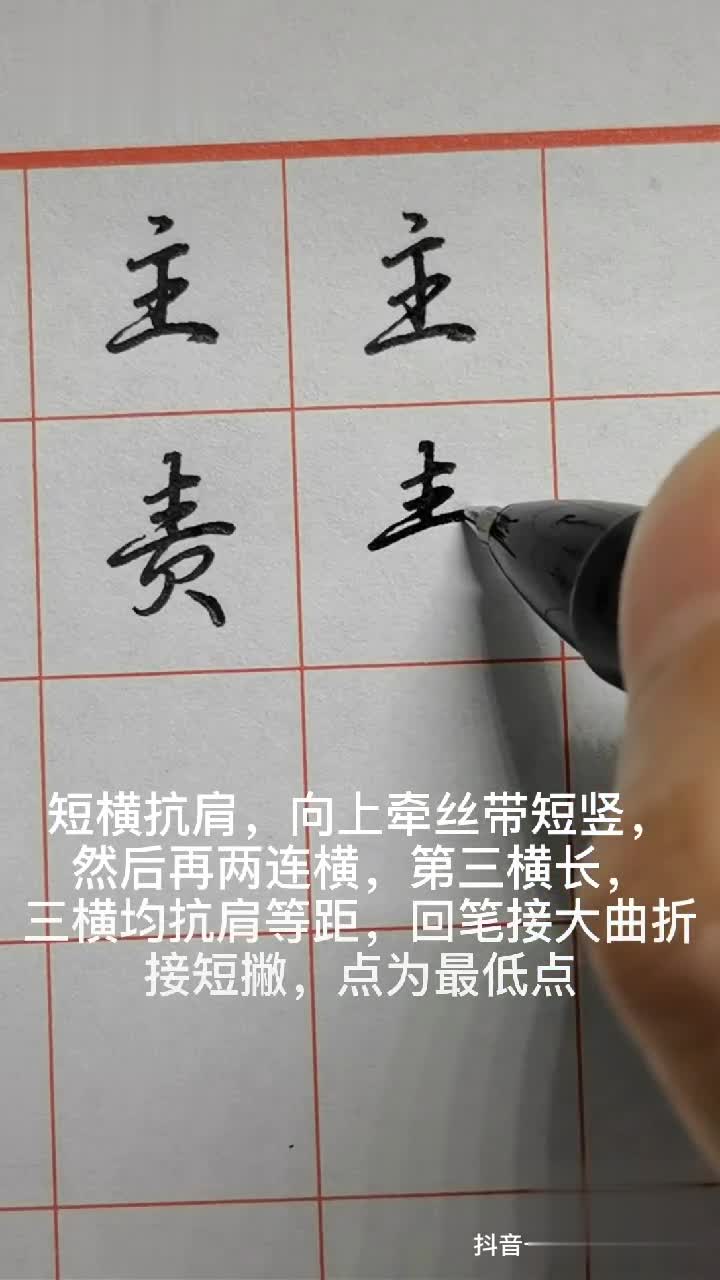 主 主
责 龶
短横抗肩，向上牵丝带短竖，
然后再两连横，第三横长，
三横均抗肩等距，回笔接大曲折
接短撇，点为最低点
抖音